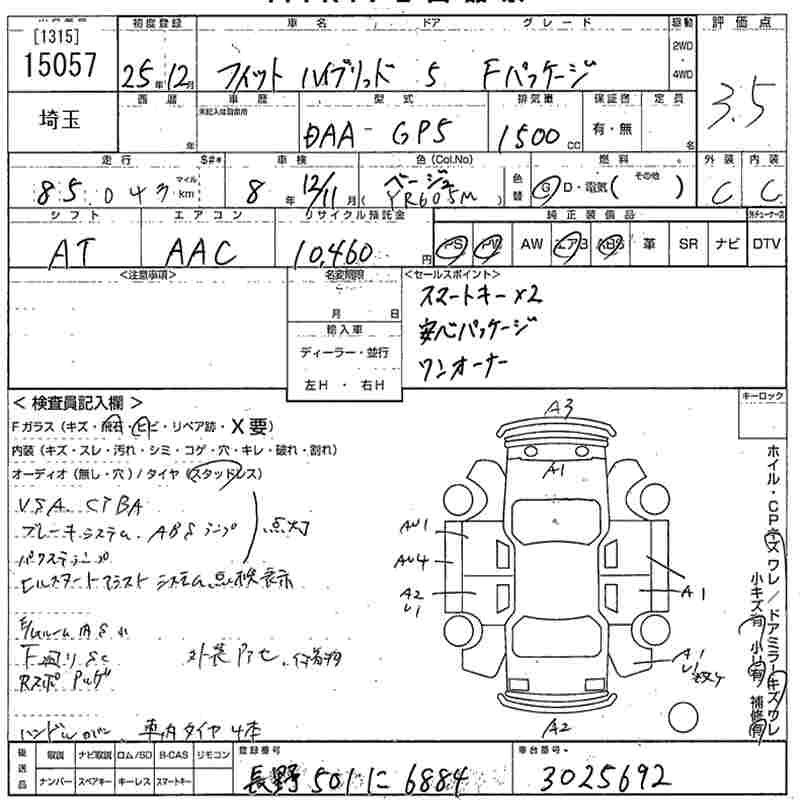 [1315]
15057
埼玉
初度登録 車名 ドア グレード 駆動 評価点
25年12月 フィット ハイブリッド 5 Fパッケージ 2WD・4WD 3.5
西暦 車歴 型式 排気量 保証書 定員
年 未記入は自家用 DAA-GP5 1500cc 有・無 名
走行 $#* 車検 色(Col.No) 色替 燃料 外装 内装
85,043 マイル km 8年12/11月 ベージュ YR605M G・D・電気( その他 ) C C
シフト エアコン リサイクル預託金 純正装備品
AT AAC 10,460円 PS PW AW エアB ABS 革 SR ナビ DTV
<注意事項> 名変期限 <セールスポイント>
月 日
輸入車
ディーラー・並行
左H・右H
スマートキー×2
安心パッケージ
ワンオーナー
< 検査員記入欄 > キーロック
Fガラス(キズ・飛石・ヒビ・リペア跡・X要)
内装(キズ・スレ・汚れ・シミ・コゲ・穴・キレ・破れ・割れ)
オーディオ(無し・穴)/タイヤ(スタッドレス)
VSA. CTBA
ブレーキシステム. ABSランプ 点灯
ヒルスタートアシスト システム点検表示
下回りSC
外装
ハンドルカバー 車内タイヤ4本
A3
A1
AU1
AU4
A2
A1
A1
A2
ホイル・CPキズ ワレ/ドアミラーキズワレ
小キズ有 補修有
後送品 取説 ナビ取説 ロム/SD B-CAS リモコン
ナンバー スペアキー キーレス スマートキー
登録番号 長野 501 に 6884
車台番号 3025692